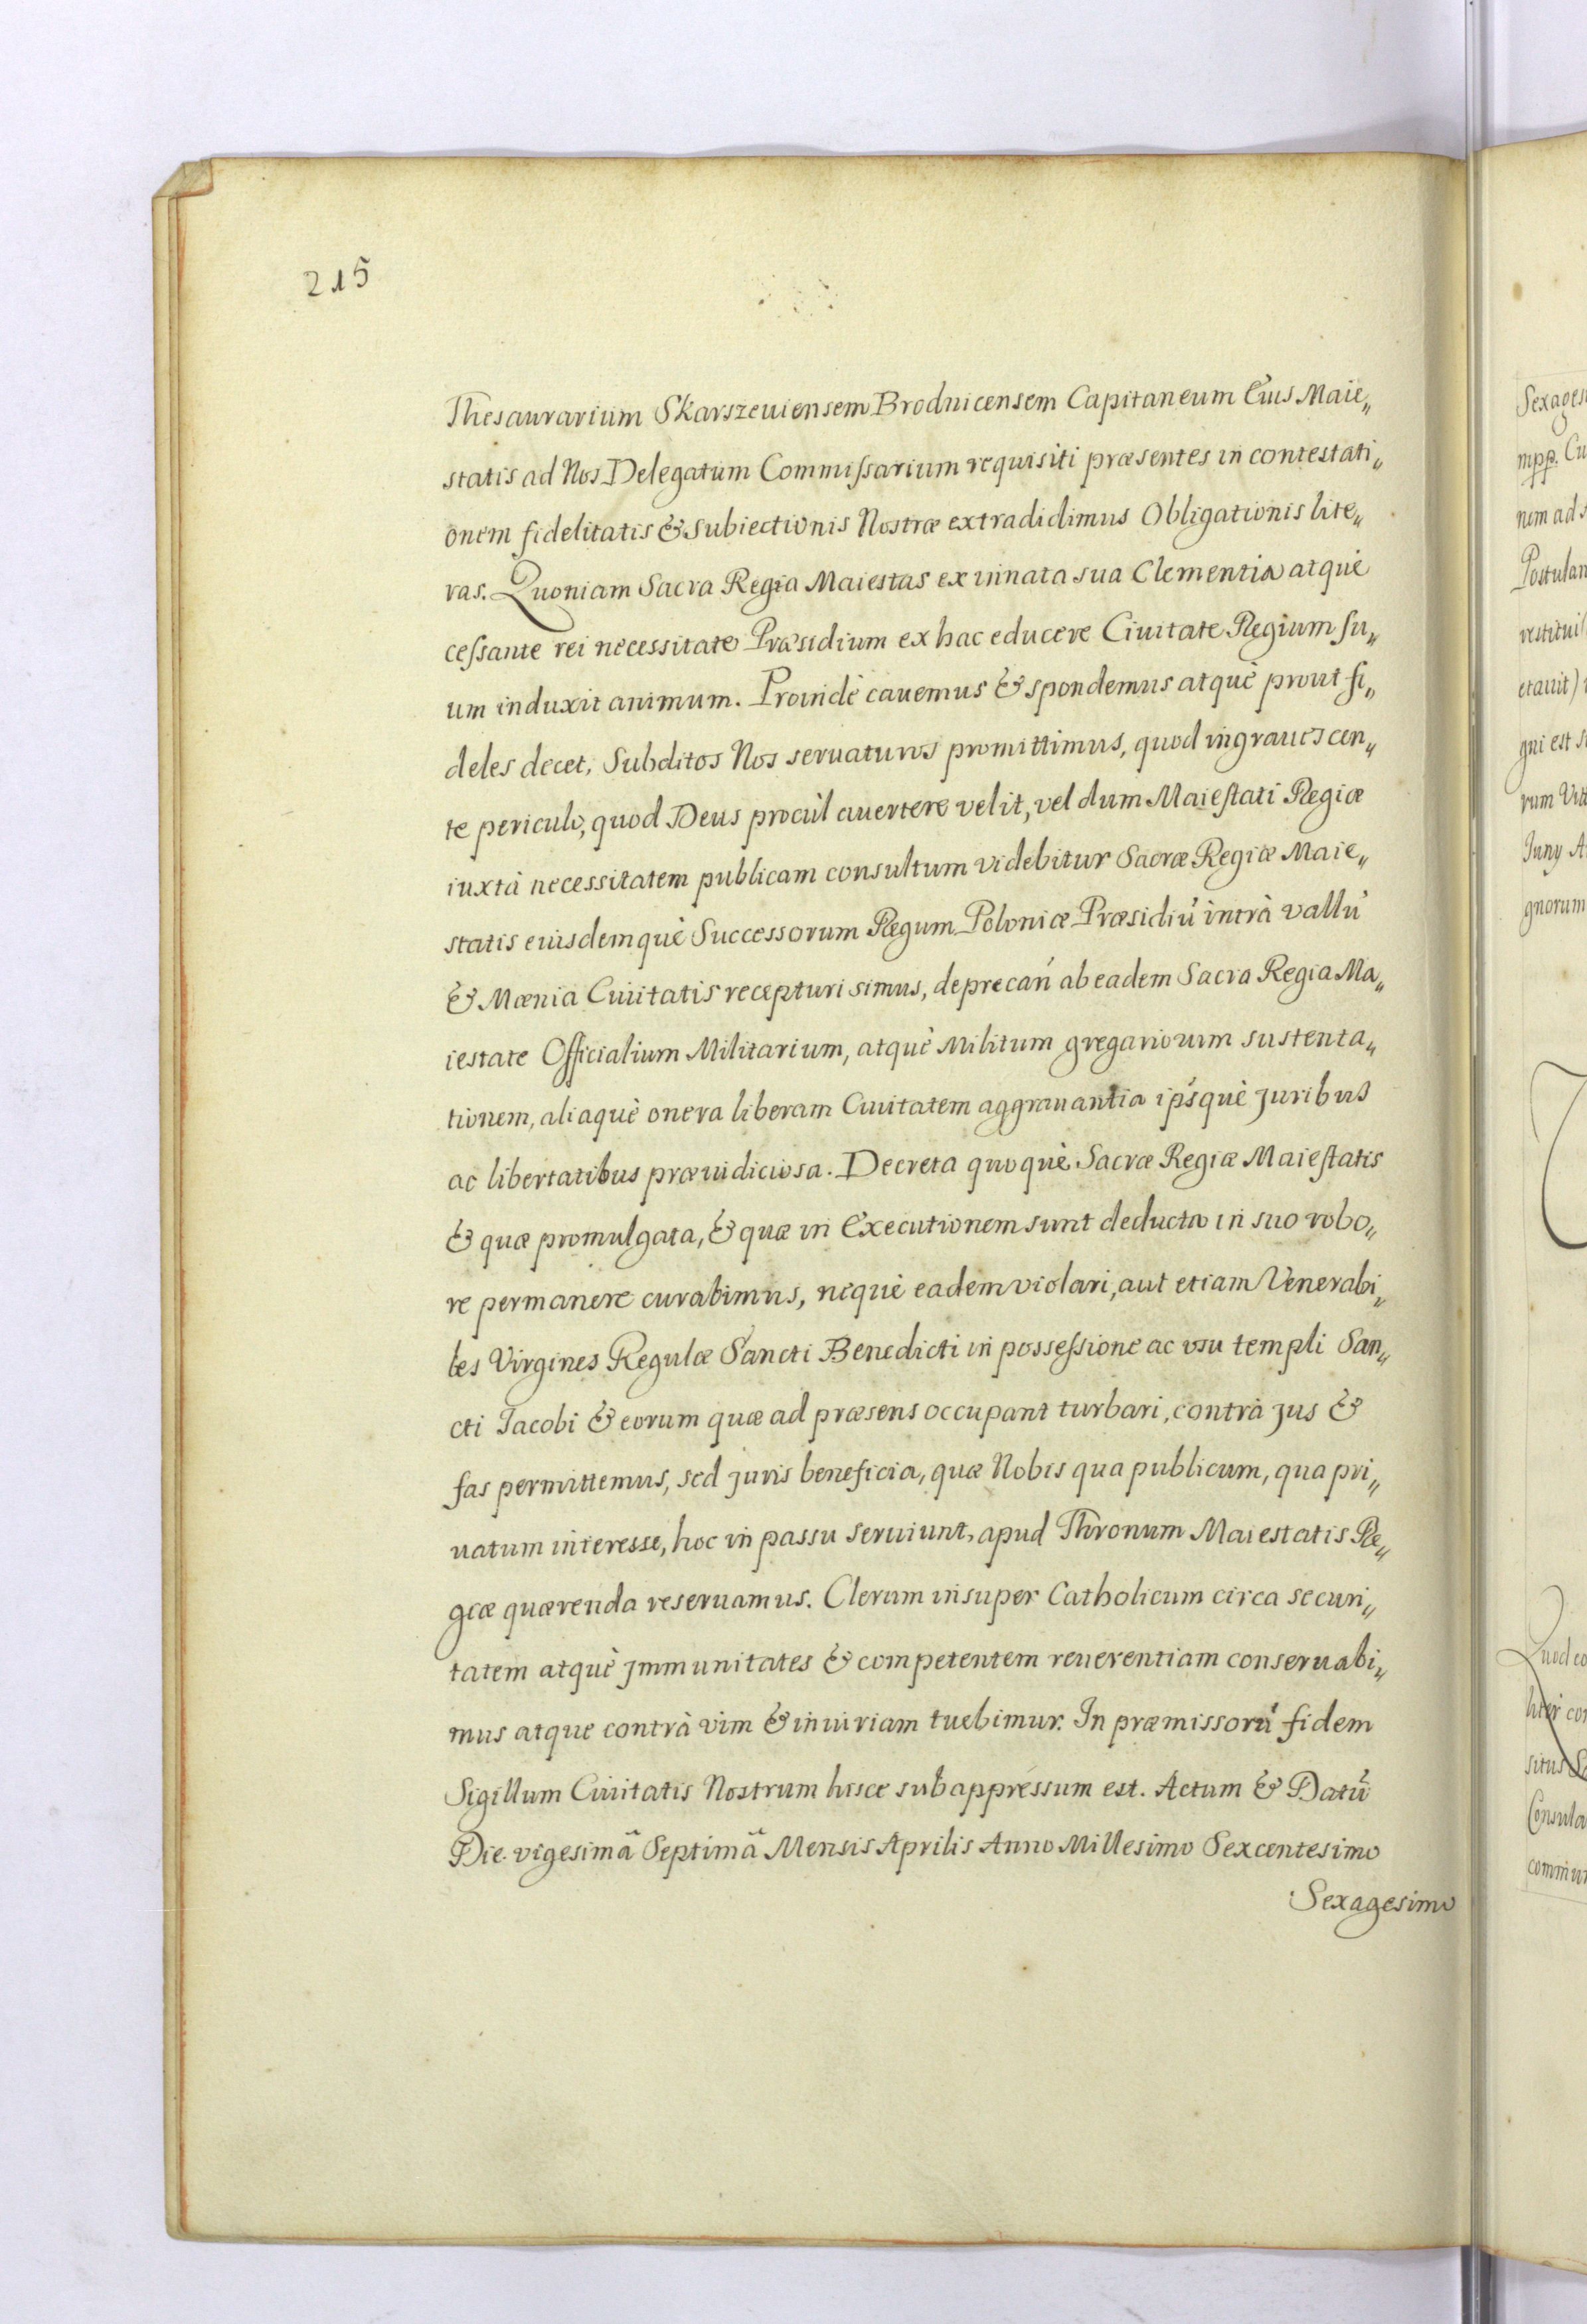 215
Thesaurarium Skarszeuiensem Brodnicensem Capitaneum Eius Maie„
statis ad Nos Delegatum Commiſsarium requisiti præsentes in contestati„
onem fidelitatis & subiectionis Nostræ extradidimus Obligationis lite„
ras. Quoniam Sacra Regia Maiestas ex innata sua Clementia atquè
ceſsante rei necessitate Præsidium ex hac educere Ciuitate Regium su„
um induxit animum. Proindè cauemus & spondemus atquè prout fi„
deles decet, Subditos Nos seruaturos promittimus, quod ingrauescen„
te periculo, quod Deus procùl auertere velit, vel dum Maieſtati Regiæ
iuxtà necessitatem publicam consultum videbitur Sacræ Regiæ Maie„
statis eiusdemquè Successorum Regum Poloniæ Præsidiú intrà vallú
& Mœnia Ciuitatis recepturi simus, deprecań ab eadem Sacra Regia Ma„
iestate Officialium Militarium, atquè Militum gregariorum sustenta„
tionem, aliaquè onera liberam Ciuitatem aggrauantia ipśquè juribus
ac libertatibus præiudiciosa. Decreta quoquè Sacræ Regiæ Maieſtatis
& quæ promulgata, & quæ in Executionem sunt deducta in suo robo„
re permanere curabimus, nequè eadem violari, aut etiam Venerabi„
les Virgines Regulæ Sancti Benedicti in posseſsione ac vsu templi San„
cti Jacobi & eorum quæ ad præsens occupant turbari, contrà jus &
fas permittemus, sed juris beneficia, quæ Nobis qua publicum, qua pri„
uatum interesse, hoc in passu seruiunt, apud Thronum Maiestatis Re„
giæ quærenda reseruamus. Clerum insuper Catholicum circa securi„
tatem atquè jmmunitates & competentem reuerentiam conseruabi„
mus atque contrà vim & iniuriam tuebimur. In præmissorú fidem
Sigillum Ciuitatis Nostrum hisce subappressum est. Actum & Datú
Die vigesimâ Septimâ Mensis Aprilis Anno Millesimo Sexcentesimo
Sexagesimo